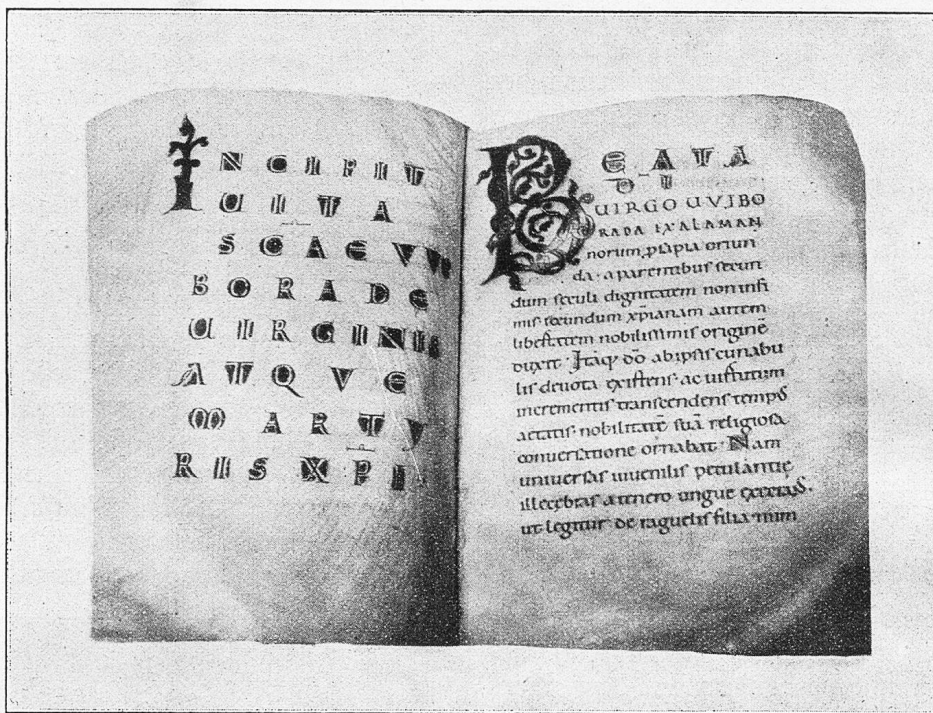 INCIPIT
UITA
SCAE VVI
BORADE
UIRGINIS
ATQVE
MARTY
RIS XPI.
BEATA
DI
UIRGO UVIBO
RADA EX ALAMAN
norum ꝓsapia oriun
da · a parentibus secun
dum seculi dignitatem non infi
mis · secundum xp̄ianam autem
nobilissimis originē
duxit · Itaq; dō ab ipsis cunabu
lis devota existens · ac uirtutum
incrementis transcendens
aetatis · nobilitatē suā religiosa
conversatione ornabat · Nam
universas iuuenilis petulantię
illecebras a tenero ungue
ut legitur de raguelis filia